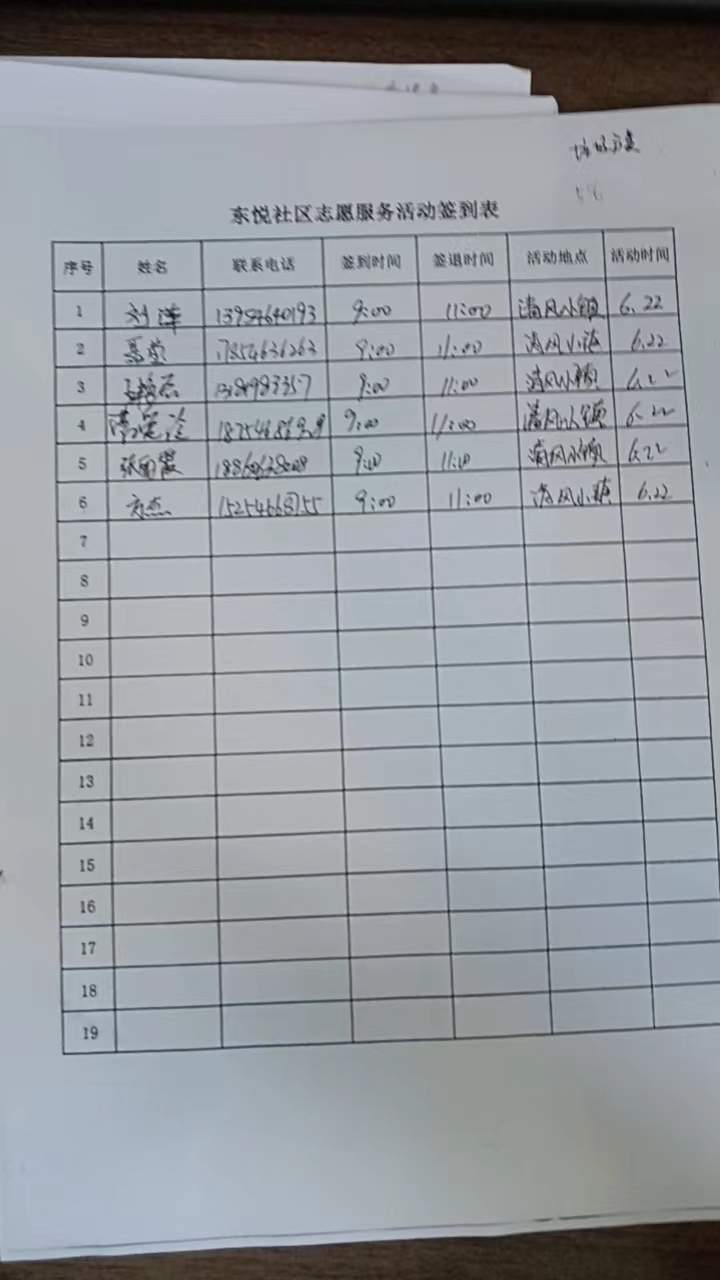 东悦社区志愿服务活动签到表
序号 姓名 联系电话 签到时间 签退时间 活动地点 活动时间
1 刘萍 13954640193 9:00 11:00 清风小镇 6.22
2 17854636263 9:00 11:00 清风小镇 6.22
3 9:00 11:00 清风小镇 6.22
4 9:00 11:00 清风小镇 6.22
5 张丽霞 9:00 11:00 清风小镇 6.22
6 15254668755 9:00 11:00 清风小镇 6.22
7
8
9
10
11
12
13
14
15
16
17
18
19